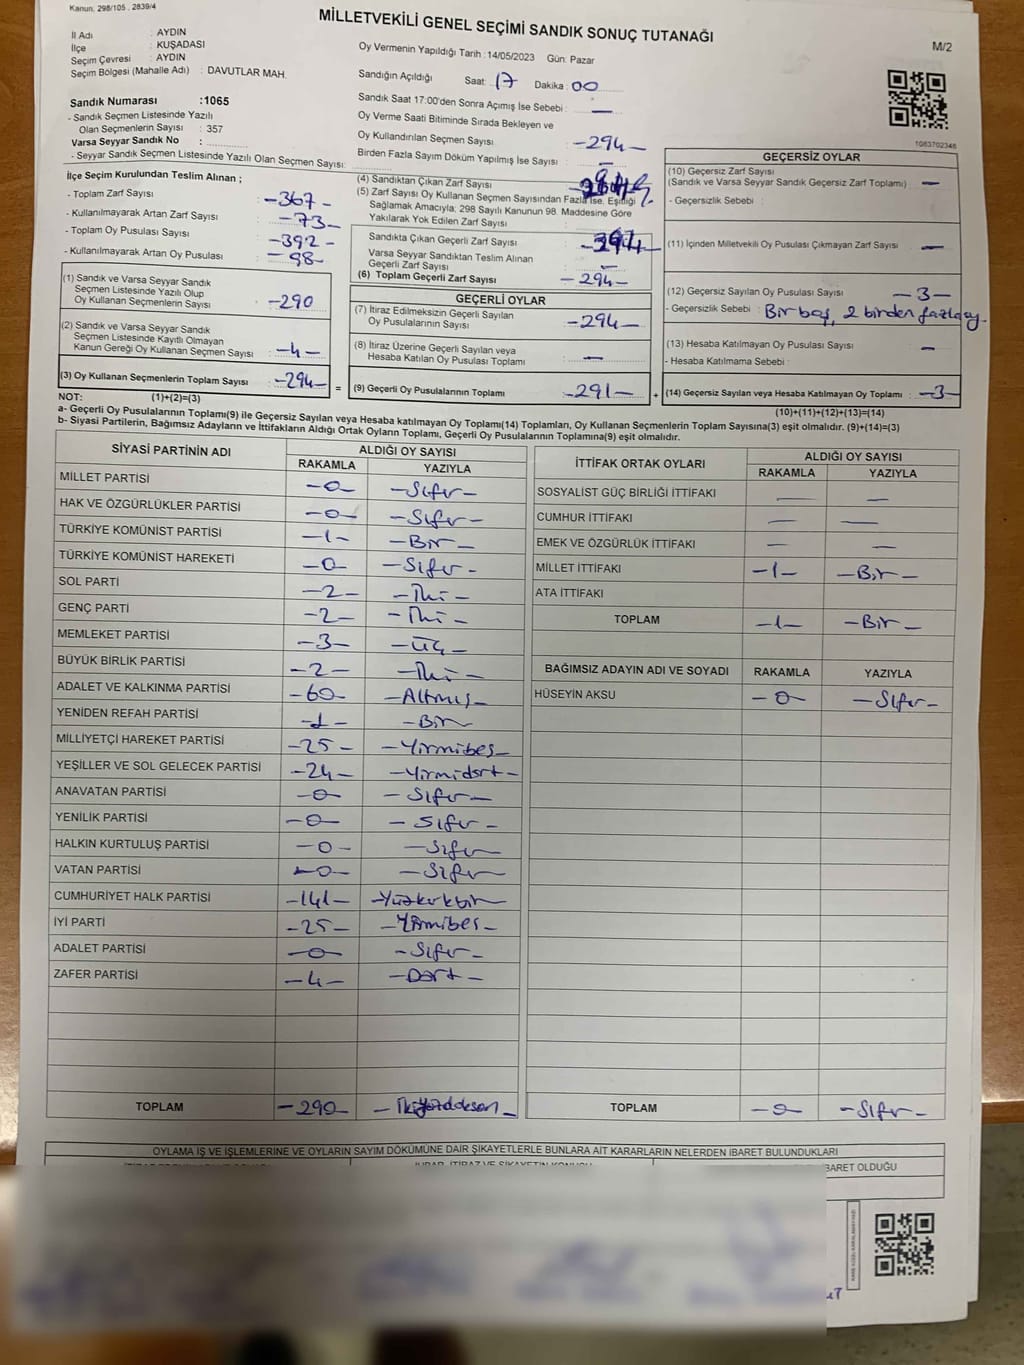 Kanun, 298/105 , 2839/4
MİLLETVEKİLİ GENEL SEÇİMİ SANDIK SONUÇ TUTANAĞI
M/2
İl Adı : AYDIN
İlçe : KUŞADASI
Seçim Çevresi : AYDIN
Seçim Bölgesi (Mahalle Adı) : DAVUTLAR MAH.
Oy Vermenin Yapıldığı Tarih : 14/05/2023 Gün: Pazar
Sandığın Açıldığı Saat: 17 Dakika : 00
Sandık Saat 17:00'den Sonra Açımış İse Sebebi : —
Oy Verme Saati Bitiminde Sırada Bekleyen ve
Oy Kullandırılan Seçmen Sayısı : -294-
Birden Fazla Sayım Döküm Yapılmış İse Sayısı : —
Sandık Numarası :1065
- Sandık Seçmen Listesinde Yazılı
Olan Seçmenlerin Sayısı : 357
Varsa Seyyar Sandık No :
- Seyyar Sandık Seçmen Listesinde Yazılı Olan Seçmen Sayısı:
İlçe Seçim Kurulundan Teslim Alınan ;
- Toplam Zarf Sayısı : -367-
- Kullanılmayarak Artan Zarf Sayısı : -73-
- Toplam Oy Pusulası Sayısı : -392-
- Kullanılmayarak Artan Oy Pusulası : -98-
(1) Sandık ve Varsa Seyyar Sandık
Seçmen Listesinde Yazılı Olup
Oy Kullanan Seçmenlerin Sayısı : -290
(2) Sandık ve Varsa Seyyar Sandık
Seçmen Listesinde Kayıtlı Olmayan
Kanun Gereği Oy Kullanan Seçmen Sayısı : -4-
(3) Oy Kullanan Seçmenlerin Toplam Sayısı : -294-
(4) Sandıktan Çıkan Zarf Sayısı
(5) Zarf Sayısı Oy Kullanan Seçmen Sayısından Fazla İse, Eşitliği
Sağlamak Amacıyla; 298 Sayılı Kanunun 98. Maddesine Göre
Yakılarak Yok Edilen Zarf Sayısı :
Sandıkta Çıkan Geçerli Zarf Sayısı :
Varsa Seyyar Sandıktan Teslim Alınan
Geçerli Zarf Sayısı : —
(6) Toplam Geçerli Zarf Sayısı : -294-
GEÇERLİ OYLAR
(7) İtiraz Edilmeksizin Geçerli Sayılan
Oy Pusulalarının Sayısı : -294-
(8) İtiraz Üzerine Geçerli Sayılan veya
Hesaba Katılan Oy Pusulası Toplamı : —
= (9) Geçerli Oy Pusulalarının Toplamı : -291-
1063702346
GEÇERSİZ OYLAR
(10) Geçersiz Zarf Sayısı
(Sandık ve Varsa Seyyar Sandık Geçersiz Zarf Toplamı) : —
- Geçersizlik Sebebi :
(11) İçinden Milletvekili Oy Pusulası Çıkmayan Zarf Sayısı : —
(12) Geçersiz Sayılan Oy Pusulası Sayısı : -3-
- Geçersizlik Sebebi : Bir boş, 2 birden fazla oy.
(13) Hesaba Katılmayan Oy Pusulası Sayısı : —
- Hesaba Katılmama Sebebi :
+ (14) Geçersiz Sayılan veya Hesaba Katılmayan Oy Toplamı : -3-
NOT: (1)+(2)=(3)
(10)+(11)+(12)+(13)=(14)
a- Geçerli Oy Pusulalarının Toplamı(9) ile Geçersiz Sayılan veya Hesaba katılmayan Oy Toplamı(14) Toplamları, Oy Kullanan Seçmenlerin Toplam Sayısına(3) eşit olmalıdır. (9)+(14)=(3)
b- Siyasi Partilerin, Bağımsız Adayların ve İttifakların Aldığı Ortak Oyların Toplamı, Geçerli Oy Pusulalarının Toplamına(9) eşit olmalıdır.
SİYASİ PARTİNİN ADI ALDIĞI OY SAYISI
RAKAMLA YAZIYLA
MİLLET PARTİSİ -0- -Sıfır-
HAK VE ÖZGÜRLÜKLER PARTİSİ -0- -Sıfır-
TÜRKİYE KOMÜNİST PARTİSİ -1- -Bir-
TÜRKİYE KOMÜNİST HAREKETİ -0- -Sıfır-
SOL PARTİ -2- -İki-
GENÇ PARTİ -2- -İki-
MEMLEKET PARTİSİ -3- -Üç-
BÜYÜK BİRLİK PARTİSİ -2- -İki-
ADALET VE KALKINMA PARTİSİ -60- -Altmış-
YENİDEN REFAH PARTİSİ -1- -Bir-
MİLLİYETÇİ HAREKET PARTİSİ -25- -Yirmibeş-
YEŞİLLER VE SOL GELECEK PARTİSİ -24- -Yirmidört-
ANAVATAN PARTİSİ -0- -Sıfır-
YENİLİK PARTİSİ -0- -Sıfır-
HALKIN KURTULUŞ PARTİSİ -0- -Sıfır-
VATAN PARTİSİ -0- -Sıfır-
CUMHURİYET HALK PARTİSİ -141- -Yüzkırkbir-
İYİ PARTİ -25- -Yirmibeş-
ADALET PARTİSİ -0- -Sıfır-
ZAFER PARTİSİ -4- -Dört-
TOPLAM -290- -İkiyüzdoksan-
İTTİFAK ORTAK OYLARI ALDIĞI OY SAYISI
RAKAMLA YAZIYLA
SOSYALİST GÜÇ BİRLİĞİ İTTİFAKI — —
CUMHUR İTTİFAKI — —
EMEK VE ÖZGÜRLÜK İTTİFAKI — —
MİLLET İTTİFAKI -1- -Bir-
ATA İTTİFAKI
TOPLAM -1- -Bir-
BAĞIMSIZ ADAYIN ADI VE SOYADI RAKAMLA YAZIYLA
HÜSEYİN AKSU -0- -Sıfır-
TOPLAM -0- -Sıfır-
OYLAMA İŞ VE İŞLEMLERİNE VE OYLARIN SAYIM DÖKÜMÜNE DAİR ŞİKAYETLERLE BUNLARA AİT KARARLARIN NELERDEN İBARET BULUNDUKLARI
İBARET OLDUĞU